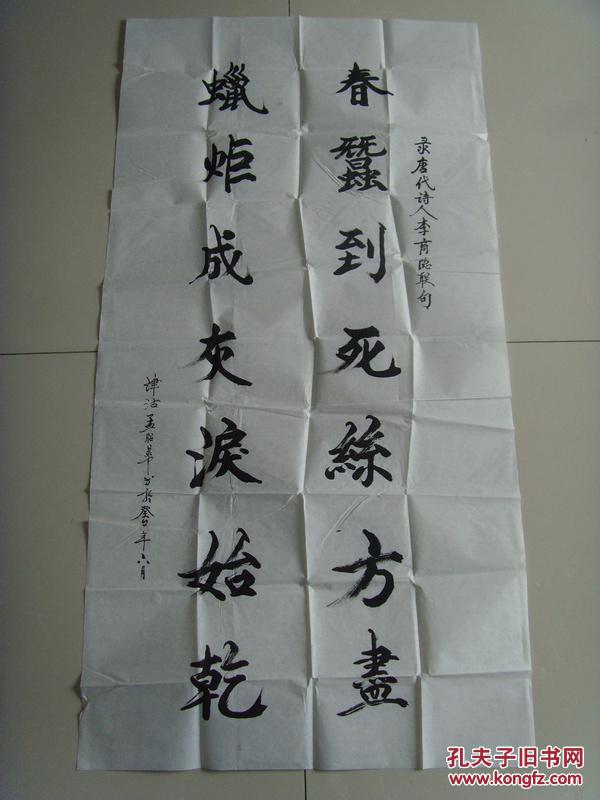 录唐代诗人李商隐联句
春蠶到死絲方盡
蠟炬成灰淚始乾
津沽孟昭书於癸巳年六月
孔夫子旧书网
www.kongfz.com